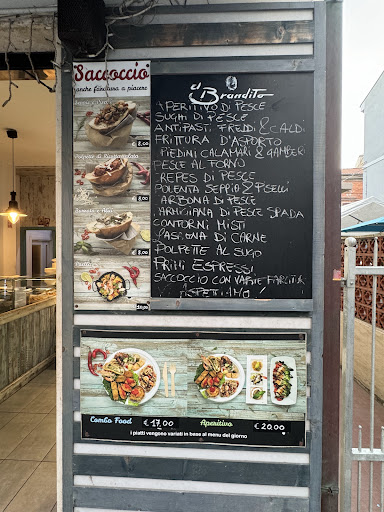 Saccoccio
anche farcitura a piacere
€ 8,00
Polpette di
€ 8,00
€ 8,00
el Brandito
APERITIVO DI PESCE
SUGHI DI PESCE
ANTIPAST. FREDDI & CALDI
FRITTURA D'ASPORTO
PIEDINI CALAMARI & GAMBERI
PESCE AL FORNO
CREPES DI PESCE
POLENTA SEPPIA & PISELLI
CARBONA DI PESCE
PARMIGIANA DI PESCE SPADA
CONTORNI MISTI
DI CARNE
POLPETTE AL SUGO
PRIMI ESPRESSI
SACCOCCIO CON VARIE
Combo Food
€ 17,00
Aperitivo
€ 20,00
I piatti vengono variati in base al menu del giorno